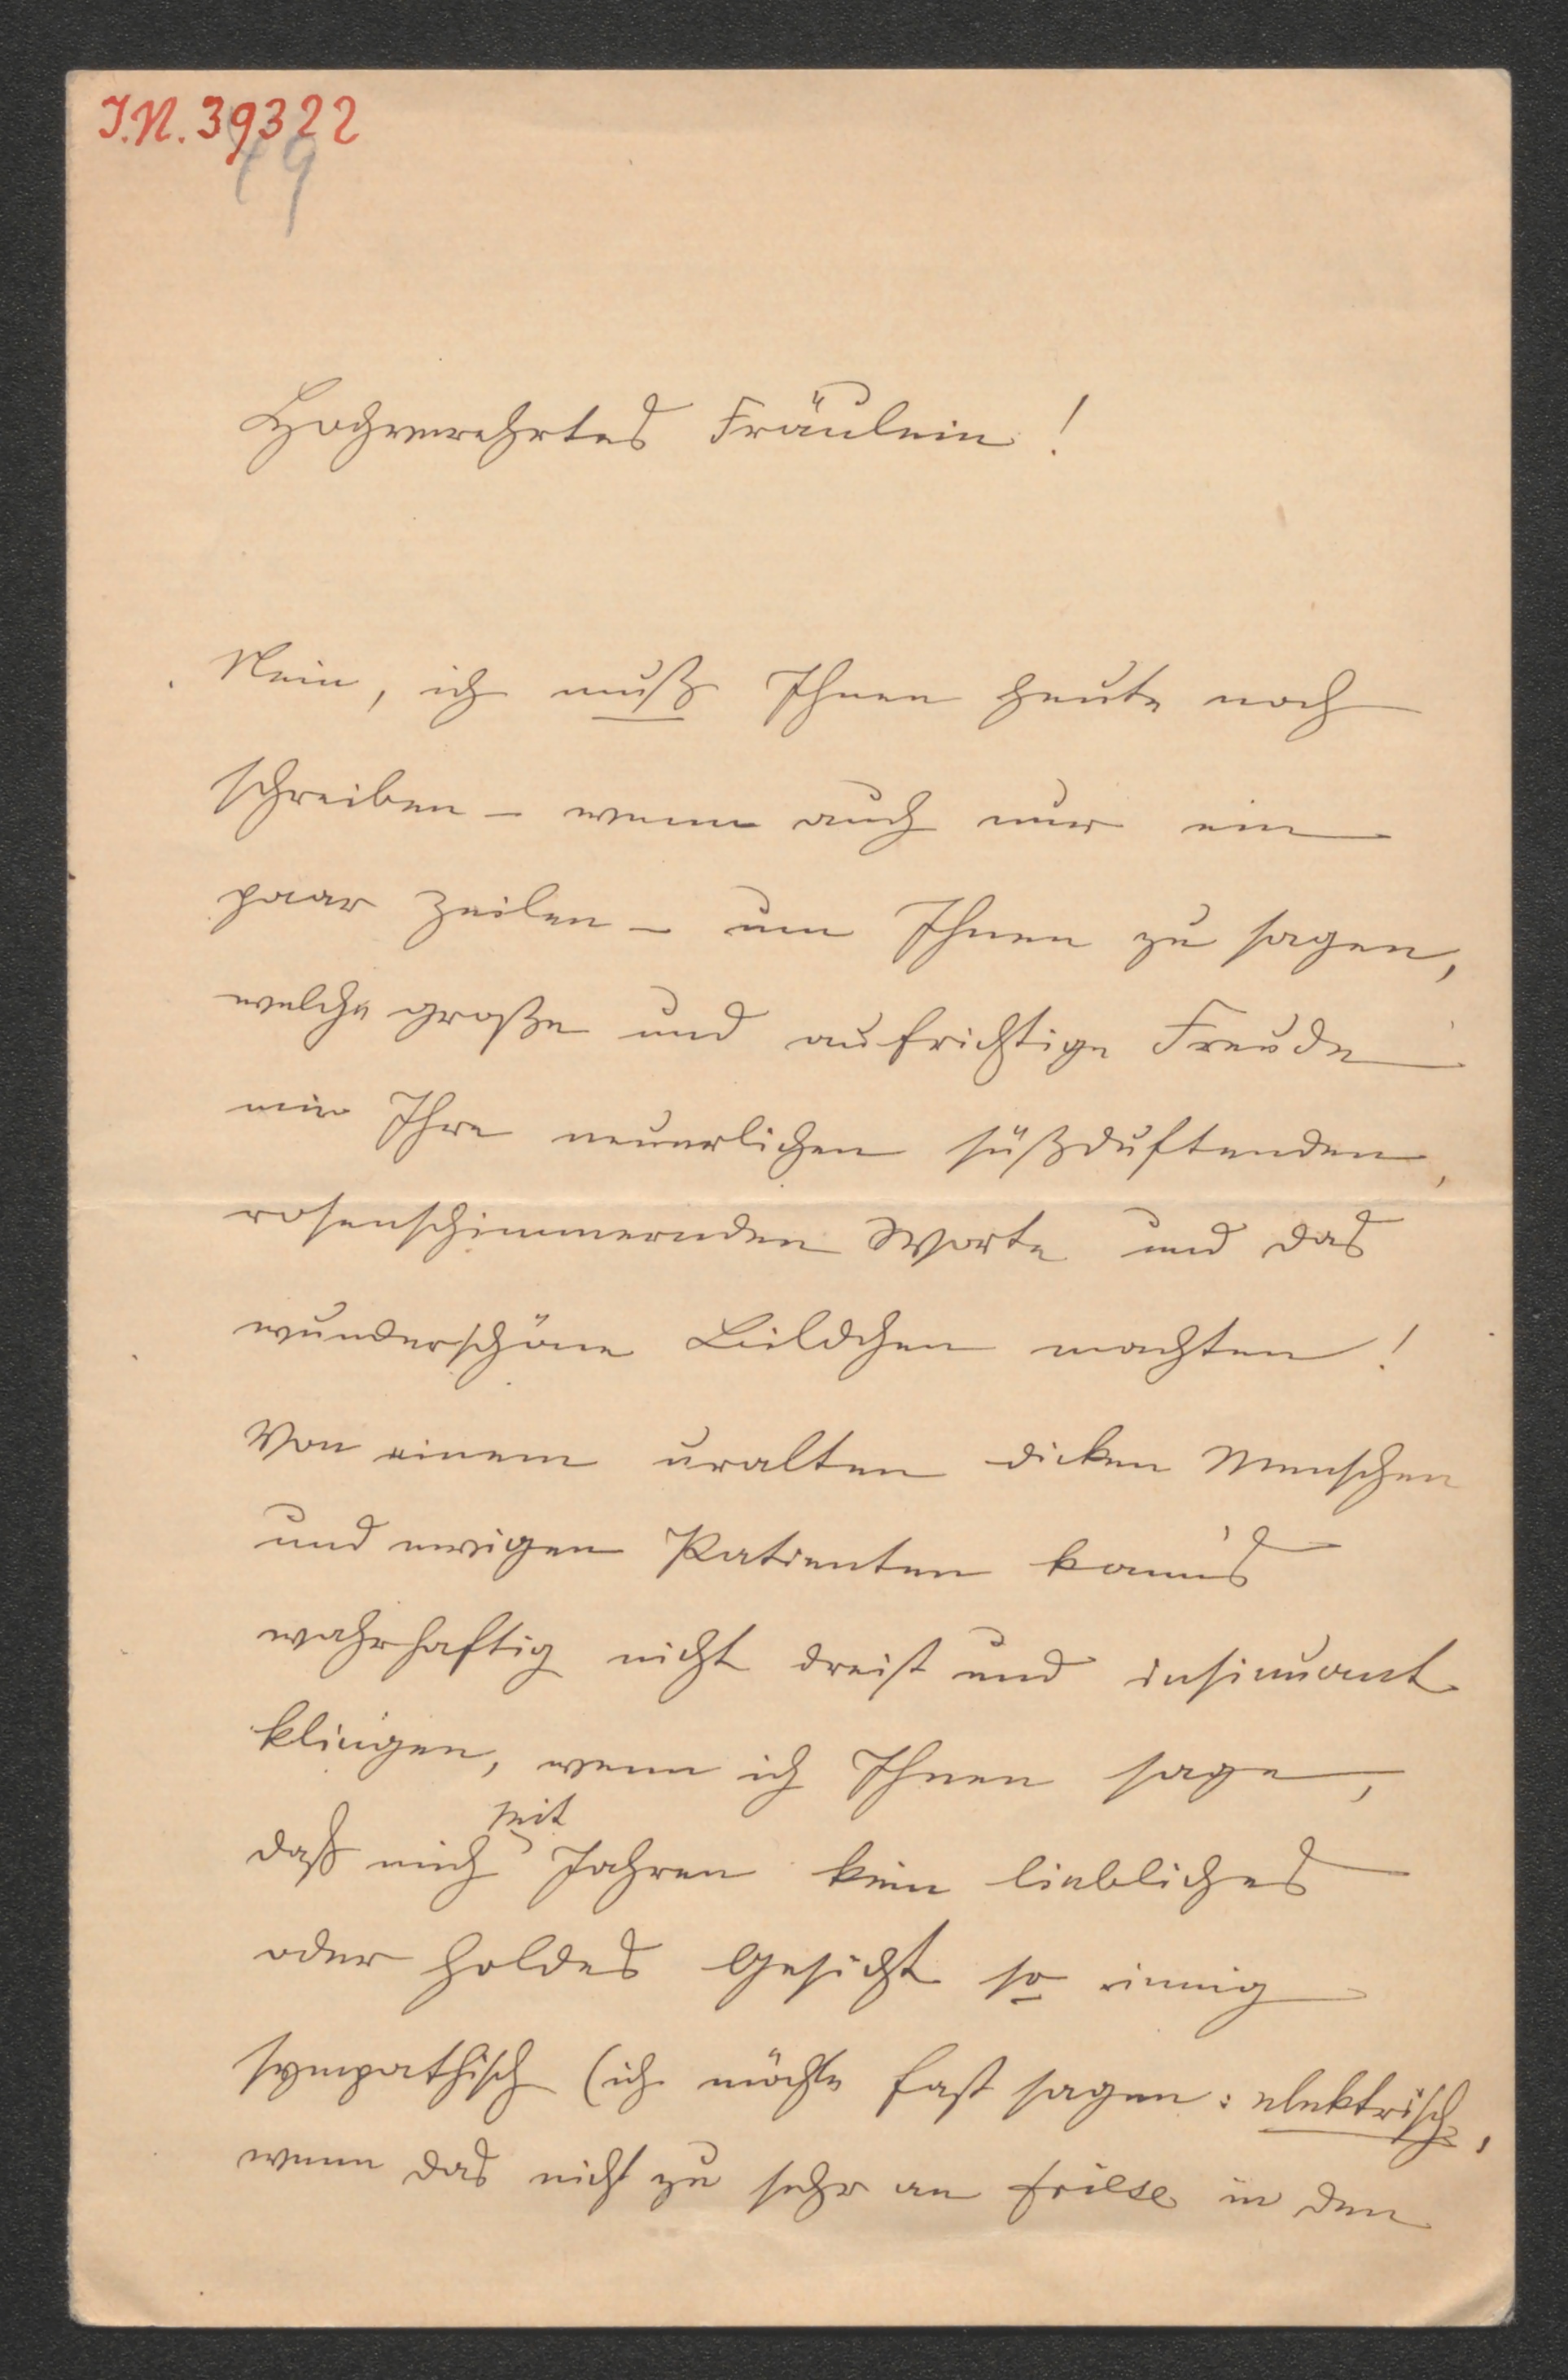 I.N. 39322
49
Hochverehrtes Fräulein!
Nein, ich muß Ihnen heute noch
schreiben – wenn auch nur ein
paar Zeilen – um Ihnen zu sagen,
welche große und aufrichtige Freude
mir Ihre neuerlichen süßduftenden,
rosenschimmernden Worte und das
wunderschöne Bildchen machten!
Von einem uralten dicken Menschen
und ewigen Patienten kann's
wahrhaftig nicht dreist und insinuant
klingen, wenn ich Ihnen sage,
daß mich seit Jahren kein liebliches
oder holdes Gesicht so innig
sympathisch (ich möchte fast sagen: elektrisch,
wenn das nicht zu sehr an in den